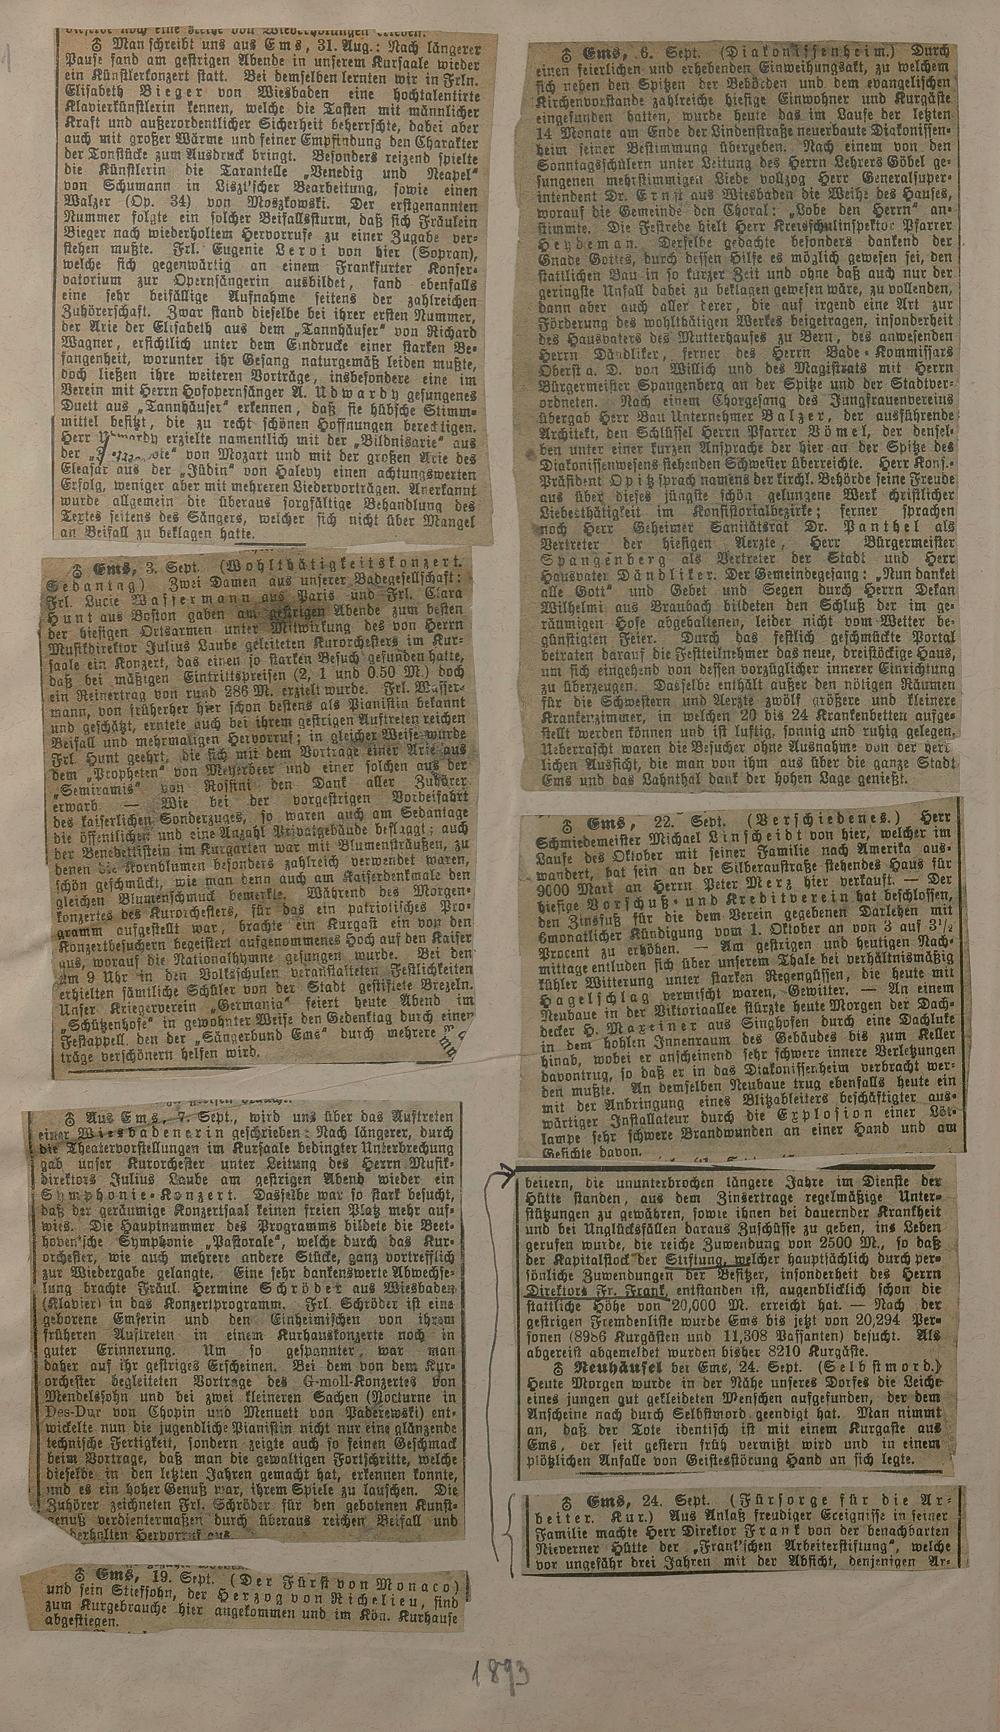 ♁ Man schreibt uns aus Ems, 31. Aug.: Nach längerer
Pause fand am gestrigen Abende in unserem Kursaale wieder
ein Künstlerkonzert statt. Bei demselben lernten wir in Frln.
Elisabeth Bieger von Wiesbaden eine hochtalentirte
Klavierkünstlerin kennen, welche die Tasten mit männlicher
Kraft und außerordentlicher Sicherheit beherrschte, dabei aber
auch mit großer Wärme und feiner Empfindung den Charakter
der Tonstücke zum Ausdruck bringt. Besonders reizend spielte
die Künstlerin die Tarantelle „Venedig und Neapel“
von Schumann in Liszt'scher Bearbeitung, sowie einen
Walzer (Op. 34) von Moszkowski. Der erstgenannten
Nummer folgte ein solcher Beifallssturm, daß sich Fräulein
Bieger nach wiederholtem Hervorrufe zu einer Zugabe ver-
stehen mußte. Frl. Eugenie Leroi von hier (Sopran),
welche sich gegenwärtig an einem Frankfurter Konser-
vatorium zur Opernsängerin ausbildet, fand ebenfalls
eine sehr beifällige Aufnahme seitens der zahlreichen
Zuhörerschaft. Zwar stand dieselbe bei ihrer ersten Nummer,
der Arie der Elisabeth aus dem „Tannhäuser“ von Richard
Wagner, ersichtlich unter dem Eindrucke einer starken Be-
fangenheit, worunter ihr Gesang naturgemäß leiden mußte,
doch ließen ihre weiteren Vorträge, insbesondere eine im
Verein mit Herrn Hofopernsänger A. Udwardy gesungenes
Duett aus „Tannhäuser“ erkennen, daß sie hübsche Stimm-
mittel besitzt, die zu recht schönen Hoffnungen berechtigen.
Herr Udwardy erzielte namentlich mit der „Bildnisarie“ aus
der von Mozart und mit der großen Arie des
Eleasar aus der „Jüdin“ von Halevy einen achtungswerten
Erfolg, weniger aber mit mehreren Liedervorträgen. Anerkannt
wurde allgemein die überaus sorgfältige Behandlung des
Textes seitens des Sängers, welcher sich nicht über Mangel
an Beifall zu beklagen hatte.
♁ Ems, 3. Sept. (Wohlthätigkeitskonzert.
Sedantag) Zwei Damen aus unserer Badegesellschaft:
Frl. Lucie Wassermann aus Paris und Frl. Clara
Hunt aus Boston gaben am gestrigen Abende zum besten
der hiesigen Ortsarmen unter Mitwirkung des von Herrn
Musikdirektor Julius Laube geleiteten Kurorchesters im Kur-
saale ein Konzert, das einen so starken Besuch gefunden hatte,
daß bei mäßigen Eintrittspreisen (2, 1 und 0.50 M.) doch
ein Reinertrag von rund 286 M. erzielt wurde. Frl. Wasser-
mann, von früherher hier schon bestens als Pianistin bekannt
und geschätzt, erntete auch bei ihrem gestrigen Auftreten reichen
Beifall und mehrmaligen Hervorruf; in gleicher Weise wurde
Frl Hunt geehrt, die sich mit dem Vortrage einer Arie aus
dem „Propheten“ von Meyerbeer und einer solchen aus der
„Semiramis“ von Rossini den Dank aller Zuhörer
erwarb. — Wie bei der vorgestrigen Vorbeifahrt
des kaiserlichen Sonderzuges, so waren auch am Sedantage
die öffentlichen und eine Anzahl Privatgebäude beflaggt; auch
der Benedettistein im Kurgarten war mit Blumensträußen, zu
denen die Kornblumen besonders zahlreich verwendet waren,
schön geschmückt, wie man denn auch am Kaiserdenkmale den
gleichen Blumenschmuck bemerkte. Während des Morgen-
konzertes des Kurorchesters, für das ein patriotisches Pro-
gramm aufgestellt war, brachte ein Kurgast ein von den
Konzertbesuchern begeistert aufgenommenes Hoch auf den Kaiser
aus, worauf die Nationalhymne gesungen wurde. Bei den
um 9 Uhr in den Volksschulen veranstalteten Festlichkeiten
erhielten sämtliche Schüler von der Stadt gestiftete Brezeln.
Unser Kriegerverein „Germania“ feiert heute Abend im
„Schützenhofe“ in gewohnter Weise den Gedenktag durch einen
Festappell, den der „Sängerbund Ems“ durch mehrere
träge verschönern helfen wird.
♁ Aus Ems, 7. Sept., wird uns über das Auftreten
einer Wiesbadenerin geschrieben: Nach längerer, durch
die Theatervorstellungen im Kursaale bedingter Unterbrechung
gab unser Kurorchester unter Leitung des Herrn Musik-
direktors Julius Laube am gestrigen Abend wieder ein
Symphonie-Konzert. Dasselbe war so stark besucht,
daß der geräumige Konzertsaal keinen freien Platz mehr auf-
wies. Die Hauptnummer des Programms bildete die Beet-
hoven'sche Symphonie „Pastorale“, welche durch das Kur-
orchester, wie auch mehrere andere Stücke, ganz vortrefflich
zur Wiedergabe gelangte. Eine sehr dankenswerte Abwechse-
lung brachte Fräul. Hermine Schröder aus Wiesbaden
(Klavier) in das Konzertprogramm. Frl. Schröder ist eine
geborene Emserin und den Einheimischen von ihrem
früheren Auftreten in einem Kurhauskonzerte noch in
guter Erinnerung. Um so gespannter war man
daher auf ihr gestriges Erscheinen. Bei dem von dem Kur-
orchester begleiteten Vortrage des G-moll-Konzertes von
Mendelssohn und bei zwei kleineren Sachen (Nocturne in
Des-Dur von Chopin und Menuett von Paderewski) ent-
wickelte nun die jugendliche Pianistin nicht nur eine glänzende
technische Fertigkeit, sondern zeigte auch so feinen Geschmack
beim Vortrage, daß man die gewaltigen Fortschritte, welche
dieselbe in den letzten Jahren gemacht hat, erkennen konnte,
und es ein hoher Genuß war, ihrem Spiele zu lauschen. Die
Zuhörer zeichneten Frl. Schröder für den gebotenen Kunst-
genuß verdientermaßen durch überaus reichen Beifall und
derholten Hervorruf aus.
♁ Ems, 19. Sept. (Der Fürst von Monaco)
und sein Stiefsohn, der Herzog von Richelieu, sind
zum Kurgebrauche hier angekommen und im Kön. Kurhause
abgestiegen.
♁ Ems, 6. Sept. (Diakonissenheim.) Durch
einen feierlichen und erhebenden Einweihungsakt, zu welchem
sich neben den Spitzen der Behörden und dem evangelischen
Kirchenvorstande zahlreiche hiesige Einwohner und Kurgäste
eingefunden hatten, wurde heute das im Laufe der letzten
14 Monate am Ende der Lindenstraße neuerbaute Diakonissen-
heim seiner Bestimmung übergeben. Nach einem von den
Sonntagsschülern unter Leitung des Herrn Lehrers Göbel ge-
sungenen mehrstimmigen Liede vollzog Herr Generalsuper-
intendent Dr. Ernst aus Wiesbaden die Weihe des Hauses,
worauf die Gemeinde den Choral: „Lobe den Herrn“ an-
stimmte. Die Festrede hielt Herr Kreisschulinspektor Pfarrer
Heydeman. Derselbe gedachte besonders dankend der
Gnade Gottes, durch dessen Hilfe es möglich gewesen sei, den
stattlichen Bau in so kurzer Zeit und ohne daß auch nur der
geringste Unfall dabei zu beklagen gewesen wäre, zu vollenden,
dann aber auch aller derer, die auf irgend eine Art zur
Förderung des wohlthätigen Werkes beigetragen, insonderheit
des Hausvaters des Mutterhauses zu Bern, des anwesenden
Herrn Dändliker, ferner des Herrn Bade-Kommissars
Oberst a. D. von Willich und des Magistrats mit Herrn
Bürgermeister Spangenberg an der Spitze und der Stadtver-
ordneten. Nach einem Chorgesang des Jungfrauenvereins
übergab Herr Bau Unternehmer Balzer, der ausführende
Architekt, den Schlüssel Herrn Pfarrer Vömel, der densel-
ben unter einer kurzen Ansprache der hier an der Spitze des
Diakonissenwesens stehenden Schwester überreichte. Herr Kons.-
Präsident Opitz sprach namens der kirchl. Behörde seine Freude
aus über dieses jüngste schön gelungene Werk christlicher
Liebesthätigkeit im Konsistorialbezirke; ferner sprachen
noch Herr Geheimer Sanitätsrat Dr. Panthel als
Vertreter der hiesigen Aerzte, Herr Bürgermeister
Spangenberg als Vertreter der Stadt und Herr
Hausvater Dändliker. Der Gemeindegesang: „Nun danket
alle Gott“ und Gebet und Segen durch Herrn Dekan
Wilhelmi aus Braubach bildeten den Schluß der im ge-
räumigen Hofe abgehaltenen, leider nicht vom Wetter be-
günstigten Feier. Durch das festlich geschmückte Portal
betraten darauf die Festteilnehmer das neue, dreistöckige Haus,
um sich eingehend von dessen vorzüglicher innerer Einrichtung
zu überzeugen. Dasselbe enthält außer den nötigen Räumen
für die Schwestern und Aerzte zwölf größere und kleinere
Krankenzimmer, in welchen 20 bis 24 Krankenbetten aufge-
stellt werden können und ist luftig, sonnig und ruhig gelegen.
Ueberrascht waren die Besucher ohne Ausnahme von der herr
lichen Aussicht, die man von ihm aus über die ganze Stadt
Ems und das Lahnthal dank der hohen Lage genießt.
♁ Ems, 22. Sept. (Verschiedenes.) Herr
Schmiedemeister Michael Linscheidt von hier, welcher im
Laufe des Oktober mit seiner Familie nach Amerika aus-
wandert, hat sein an der Silberaustraße stehendes Haus für
9000 Mark an Herrn Peter Merz hier verkauft. — Der
hiesige Vorschuß- und Kreditverein hat beschlossen,
den Zinsfuß für die dem Verein gegebenen Darlehen mit
6monatlicher Kündigung vom 1. Oktober an von 3 auf 3½
Procent zu erhöhen. — Am gestrigen und heutigen Nach-
mittage entluden sich über unserem Thale bei verhältnismäßig
kühler Witterung unter starken Regengüssen, die heute mit
Hagelschlag vermischt waren, Gewitter. — An einem
Neubaue in der Viktoriaallee stürzte heute Morgen der Dach-
decker H. Maxeiner aus Singhofen durch eine Dachluke
in dem hohlen Innenraum des Gebäudes bis zum Keller
hinab, wobei er anscheinend sehr schwere innere Verletzungen
davontrug, so daß er in das Diakonissenheim verbracht wer-
den mußte. An demselben Neubaue trug ebenfalls heute ein
mit der Anbringung eines Blitzableiters beschäftigter aus-
wärtiger Installateur durch die Explosion einer Löt-
lampe sehr schwere Brandwunden an einer Hand und am
Gesichte davon.
beitern, die ununterbrochen längere Jahre im Dienste der
Hütte standen, aus dem Zinsertrage regelmäßige Unter-
stützungen zu gewähren, sowie ihnen bei dauernder Krankheit
und bei Unglücksfällen daraus Zuschüsse zu geben, ins Leben
gerufen wurde, die reiche Zuwendung von 2500 M., so daß
der Kapitalstock der Stiftung, welcher hauptsächlich durch per-
sönliche Zuwendungen der Besitzer, insonderheit des Herrn
Direktors Fr. Frank, entstanden ist, augenblicklich schon die
stattliche Höhe von 20,000 M. erreicht hat. — Nach der
gestrigen Fremdenliste wurde Ems bis jetzt von 20,294 Per-
sonen (8986 Kurgästen und 11,308 Passanten) besucht. Als
abgereist abgemeldet wurden bisher 8210 Kurgäste.
♁ Neuhäusel bei Ems, 24. Sept. (Selbstmord.)
Heute Morgen wurde in der Nähe unseres Dorfes die Leiche
eines jungen gut gekleideten Menschen aufgefunden, der dem
Anscheine nach durch Selbstmord geendigt hat. Man nimmt
an, daß der Tote identisch ist mit einem Kurgaste aus
Ems, der seit gestern früh vermißt wird und in einem
plötzlichen Anfalle von Geistesstörung Hand an sich legte.
♁ Ems, 24. Sept. (Fürsorge für die Ar-
beiter. Kur.) Aus Anlaß freudiger Ereignisse in seiner
Familie machte Herr Direktor Frank von der benachbarten
Nieverner Hütte der „Frank'schen Arbeiterstiftung“, welche
vor ungefähr drei Jahren mit der Absicht, denjenigen Ar-
1893